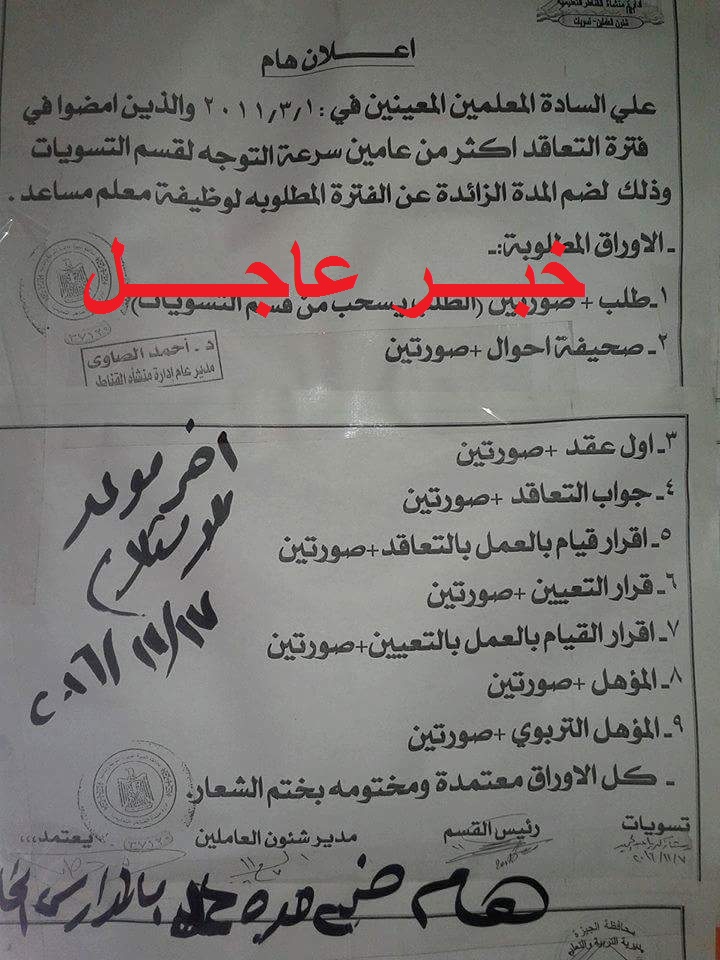 ادارة منشأة القناطر التعليمية
شئون العاملين - تسويات
اعــلان هام
علي السادة المعلمين المعينين في : ٢٠١١/٣/١ والذين امضوا في
فترة التعاقد اكثر من عامين سرعة التوجه لقسم التسويات
وذلك لضم المدة الزائدة عن الفترة المطلوبه لوظيفة معلم مساعد .
ـ الاوراق المطلوبة:ـ
خبــر عاجــل
١ـ طلب + صورتين (الطلب يسحب من قسم التسويات)
٢ـ صحيفة احوال +صورتين
٣٧١٦٩
د. أحمد الصاوى
مدير عام إدارة منشاه القناطر
٣ـ اول عقد +صورتين
٤ـ جواب التعاقد +صورتين
٥ـ اقرار قيام بالعمل بالتعاقد+صورتين
٦ـ قرار التعيين +صورتين
٧ـ اقرار القيام بالعمل بالتعيين+صورتين
٨ـ المؤهل +صورتين
٩ـ المؤهل التربوي +صورتين
ـ كل الاوراق معتمدة ومختومه بختم الشعار.
اخر موعد
للاستلام
٢٠١٦/١١/١٧
تسويات
رئيس القسم
مدير شئون العاملين
يعتمد،،،
٢٠١٦/١١/٧
٣٧١٦٩
هام
بالمدارس
محافظة الجيزة
مديرية التربية والتعليم